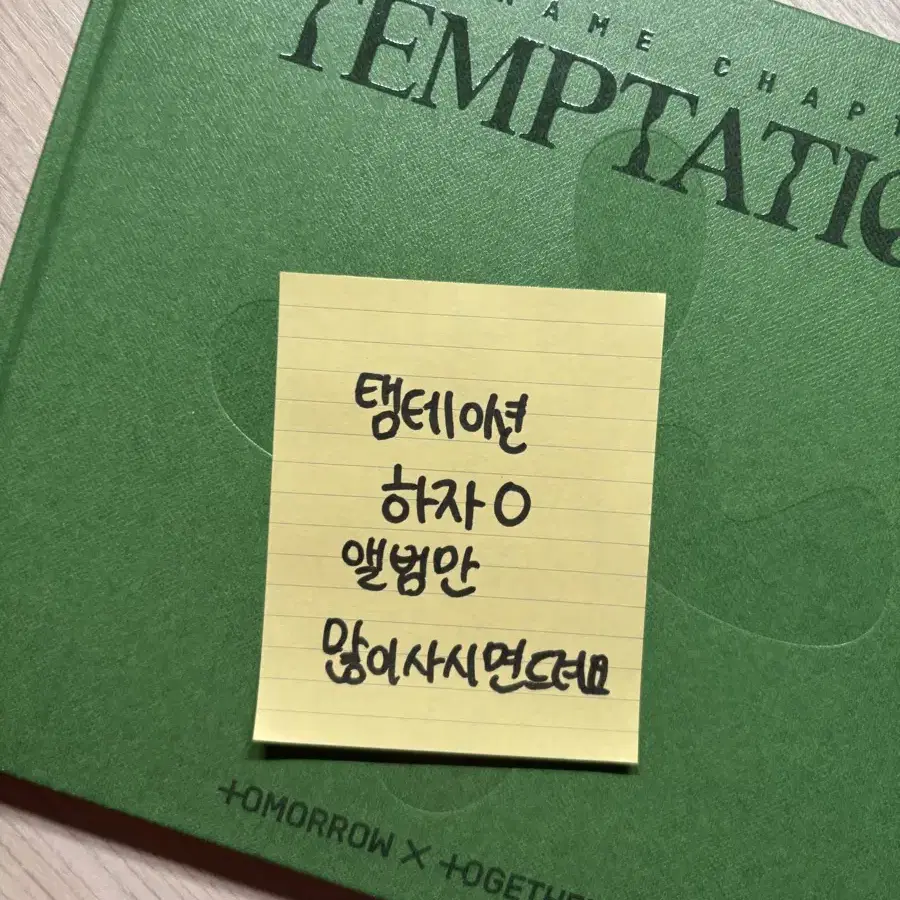 NAME CHAPT
TEMPTATIO
탬테이션
하자 O
앨범만
많이사시면드려요
TOMORROW X TOGETHE